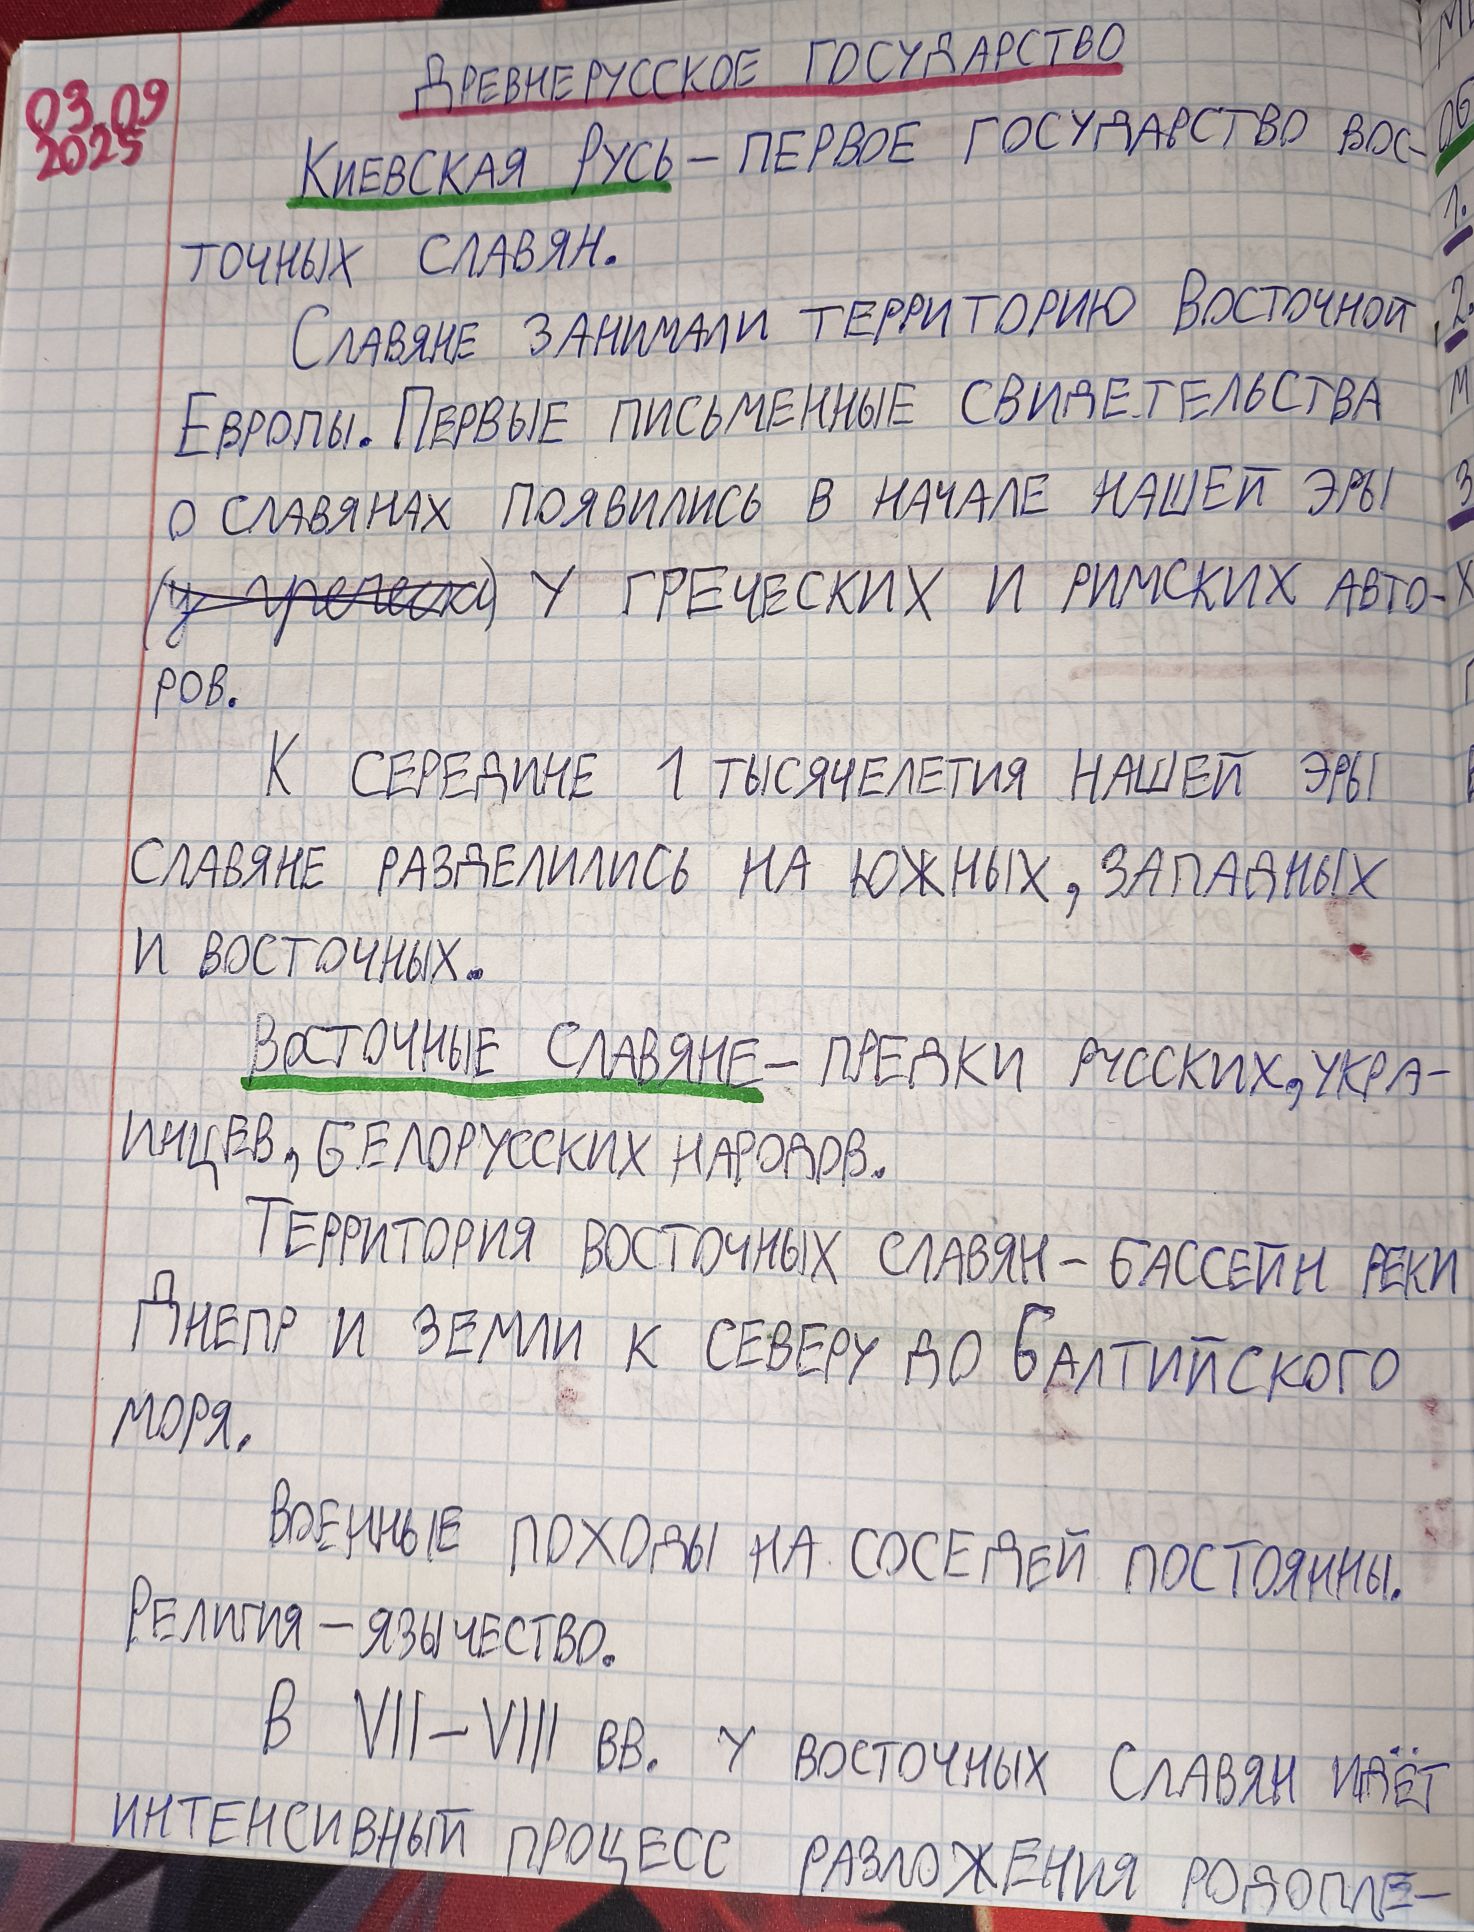 03.09
2025
ДРЕВНЕРУССКОЕ ГОСУДАРСТВО
КИЕВСКАЯ РУСЬ – ПЕРВОЕ ГОСУДАРСТВО ВОС-
ТОЧНЫХ СЛАВЯН.
СЛАВЯНЕ ЗАНИМАЛИ ТЕРРИТОРИЮ ВОСТОЧНОЙ
ЕВРОПЫ. ПЕРВЫЕ ПИСЬМЕННЫЕ СВИДЕТЕЛЬСТВА
О СЛАВЯНАХ ПОЯВИЛИСЬ В НАЧАЛЕ НАШЕЙ ЭРЫ
(у греческ) У ГРЕЧЕСКИХ И РИМСКИХ АВТО-
РОВ.
К СЕРЕДИНЕ 1 ТЫСЯЧЕЛЕТИЯ НАШЕЙ ЭРЫ
СЛАВЯНЕ РАЗДЕЛИЛИСЬ НА ЮЖНЫХ, ЗАПАДНЫХ
И ВОСТОЧНЫХ.
ВОСТОЧНЫЕ СЛАВЯНЕ – ПРЕДКИ РУССКИХ, УКРА-
ИНЦЕВ, БЕЛОРУССКИХ НАРОДОВ.
ТЕРРИТОРИЯ ВОСТОЧНЫХ СЛАВЯН – БАССЕЙН РЕКИ
ДНЕПР И ЗЕМЛИ К СЕВЕРУ ДО БАЛТИЙСКОГО
МОРЯ.
ВОЕННЫЕ ПОХОДЫ НА СОСЕДЕЙ ПОСТОЯННЫ.
РЕЛИГИЯ – ЯЗЫЧЕСТВО.
В VII – VIII ВВ. У ВОСТОЧНЫХ СЛАВЯН ИДЁТ
ИНТЕНСИВНЫЙ ПРОЦЕСС РАЗЛОЖЕНИЯ РОДОПЛЕ-
1.
2.
3